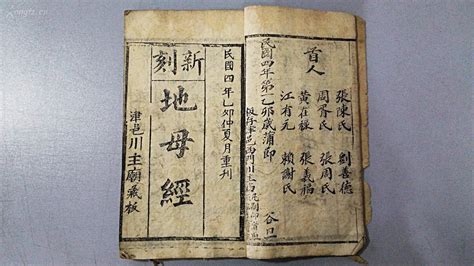 首人
張陳氏 劉善德
周胥氏 張周氏
黃在經 張義福
江有元 賴謝氏
民國四年第一乙卯歲蒲節
谷旦
民國四年乙卯仲夏月重刊
新刻
地母經
津邑川主廟藏板